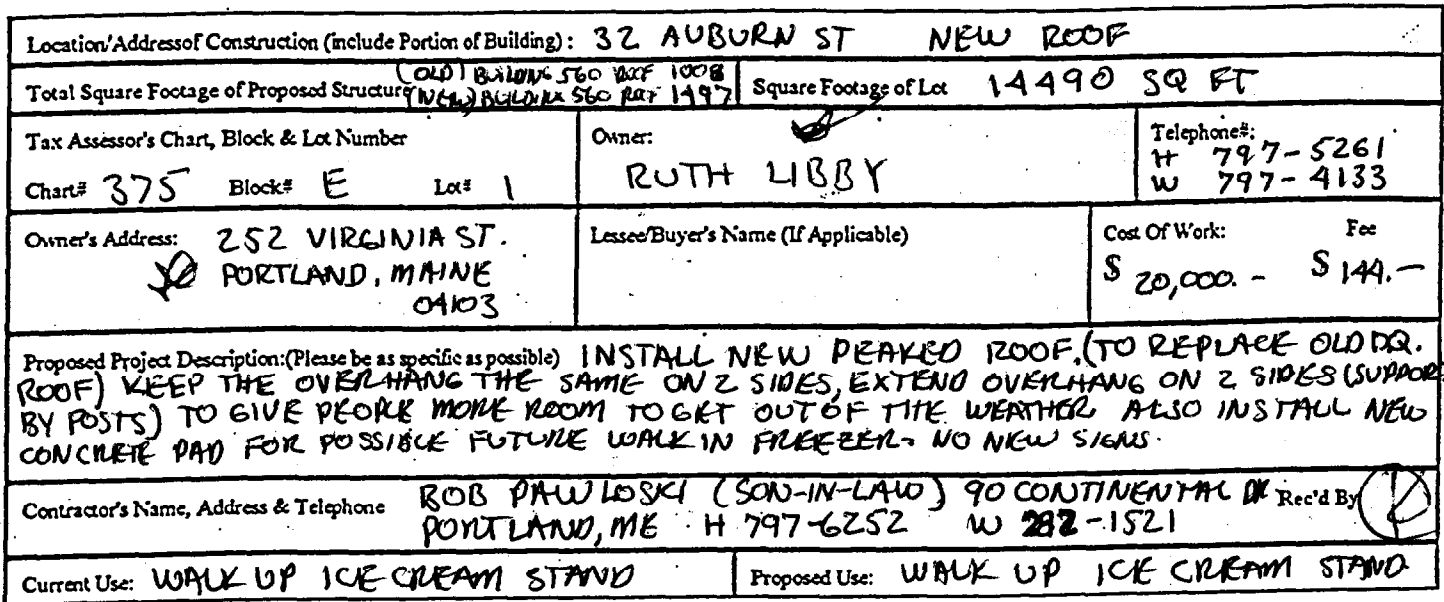 Location/Addressof Construction (include Portion of Building): 32 AUBURN ST NEW ROOF
(OLD) BUILDING 560 ROOF 1008
Total Square Footage of Proposed Structure (NEW) BUILDING 560 ROOF 1497 Square Footage of Lot 14490 SQ FT
Tax Assessor's Chart, Block & Lot Number
Chart# 375 Block# E Lot# 1
Owner:
RUTH LIBBY
Telephone#:
H 797-5261
W 797-4133
Owner's Address: 252 VIRGINIA ST.
PORTLAND, MAINE
04103
Lessee/Buyer's Name (If Applicable)
Cost Of Work: Fee
$ 20,000.- $ 144.-
Proposed Project Description:(Please be as specific as possible) INSTALL NEW PEAKED ROOF. (TO REPLACE OLD DQ.
ROOF) KEEP THE OVERHANG THE SAME ON 2 SIDES, EXTEND OVERHANG ON 2 SIDES (SUPPOR
BY POSTS) TO GIVE PEOPLE MORE ROOM TO GET OUT OF THE WEATHER ALSO INSTALL NEW
CONCRETE PAD FOR POSSIBLE FUTURE WALK IN FREEZER- NO NEW SIGNS.
Contractor's Name, Address & Telephone BOB PAWLOSKI (SON-IN-LAW) 90 CONTINENTAL DR Rec'd By
PORTLAND, ME H 797-6252 W 282-1521
Current Use: WALK UP ICE CREAM STAND Proposed Use: WALK UP ICE CREAM STAND